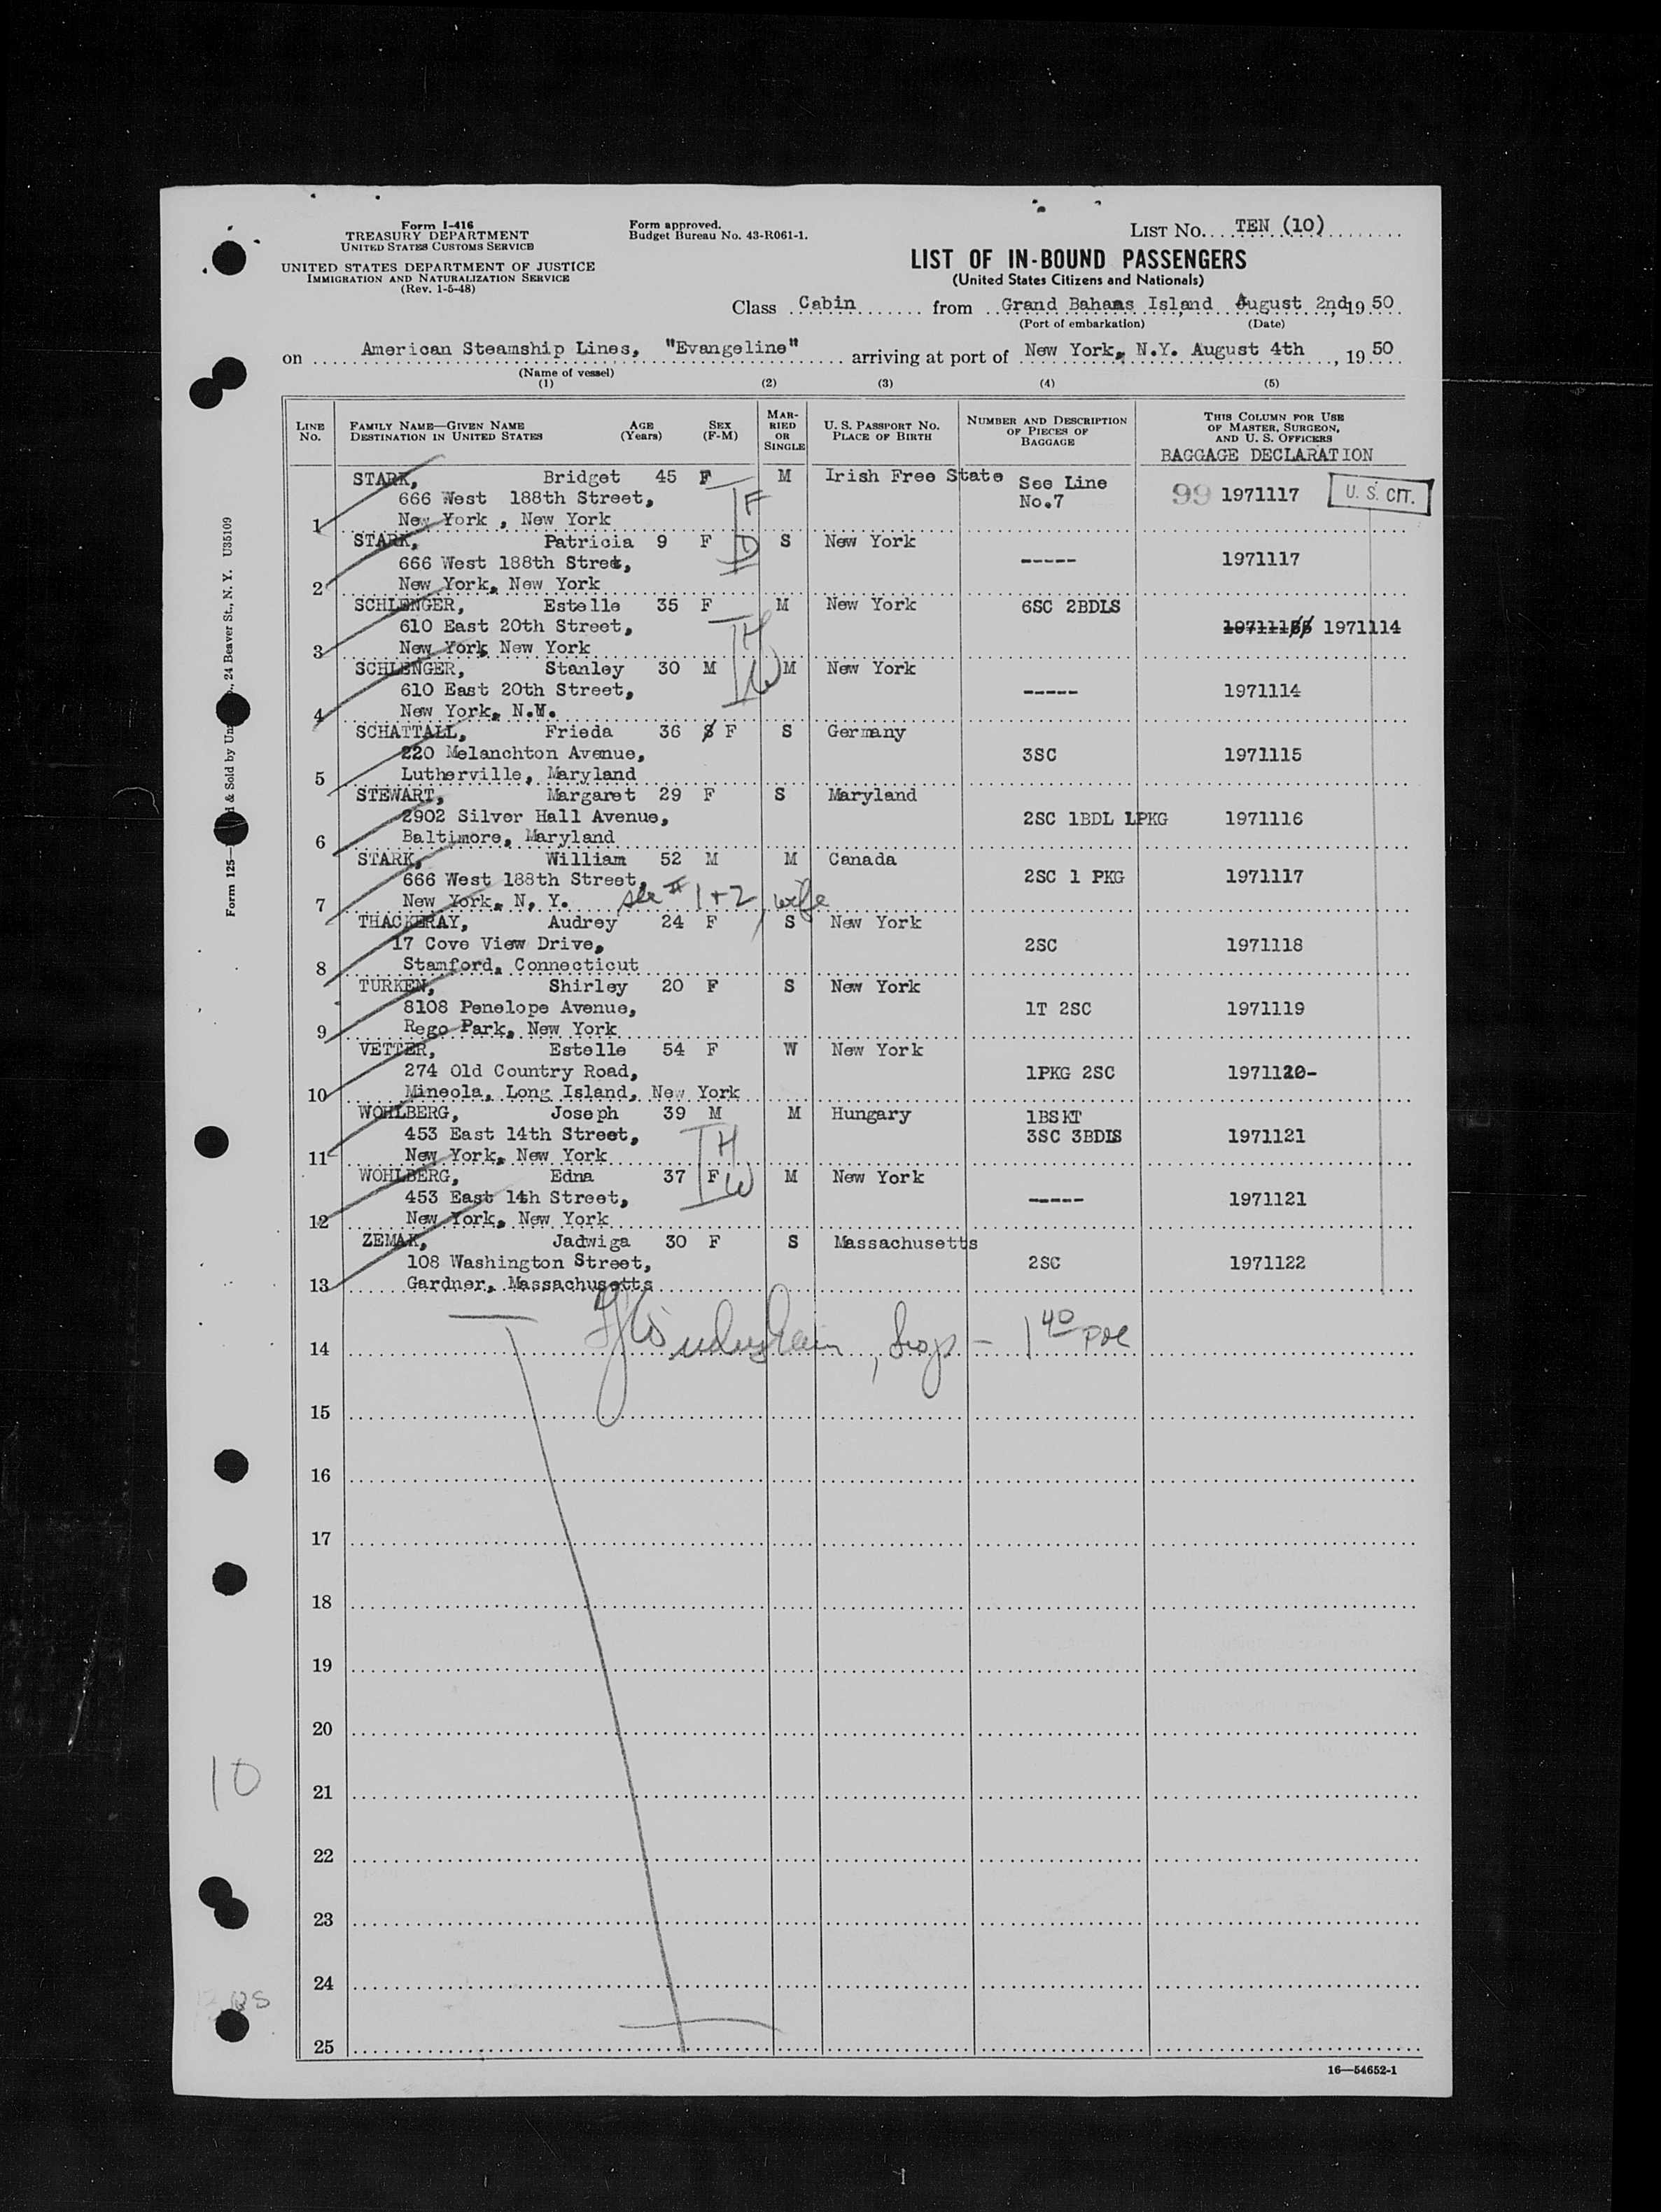 Form I-416
TREASURY DEPARTMENT
UNITED STATES CUSTOMS SERVICE
UNITED STATES DEPARTMENT OF JUSTICE
IMMIGRATION AND NATURALIZATION SERVICE
(Rev. 1-5-48)
Form approved.
Budget Bureau No. 43-R061-1.
LIST No. TEN (10)
LIST OF IN-BOUND PASSENGERS
(United States Citizens and Nationals)
Class Cabin from Grand Bahams Island, August 2nd, 19 50
(Port of embarkation) (Date)
on American Steamship Lines, "Evangeline" arriving at port of New York, N.Y. August 4th, 19 50
(Name of vessel)
(1) (2) (3) (4) (5)
LINE No.
FAMILY NAME—GIVEN NAME
DESTINATION IN UNITED STATES
AGE (Years)
SEX (F-M)
MARRIED OR SINGLE
U. S. PASSPORT NO.
PLACE OF BIRTH
NUMBER AND DESCRIPTION OF PIECES OF BAGGAGE
THIS COLUMN FOR USE OF MASTER, SURGEON, AND U. S. OFFICERS
BAGGAGE DECLARATION
STARK, Bridget 45 F M Irish Free State See Line
666 West 188th Street, No.7 99 1971117 U. S. CIT.
1 New York , New York
STARK, Patricia 9 F S New York
666 West 188th Street, ----- 1971117
2 New York, New York
SCHLENGER, Estelle 35 F M New York 6SC 2BDLS
610 East 20th Street, 1971114
3 New York New York
SCHLENGER, Stanley 30 M M New York
610 East 20th Street, ----- 1971114
4 New York, N.Y.
SCHATTALL, Frieda 36 F S Germany
220 Melanchton Avenue, 3SC 1971115
5 Lutherville, Maryland
STEWART, Margaret 29 F S Maryland
2902 Silver Hall Avenue, 2SC 1BDL 1PKG 1971116
6 Baltimore, Maryland
STARK, William 52 M M Canada
666 West 188th Street, 2SC 1 PKG 1971117
7 New York, N, Y. see # 1+2, wife
THACKERAY, Audrey 24 F S New York
17 Cove View Drive, 2SC 1971118
8 Stamford, Connecticut
TURKEN, Shirley 20 F S New York
8108 Penelope Avenue, 1T 2SC 1971119
9 Rego Park, New York
VETTER, Estelle 54 F W New York
274 Old Country Road, 1PKG 2SC 1971120-
10 Mineola, Long Island, New York
WOHLBERG, Joseph 39 M M Hungary 1BSKT
453 East 14th Street, 3SC 3BDLS 1971121
11 New York, New York
WOHLBERG, Edna 37 F M New York
453 East 14h Street, ----- 1971121
12 New York, New York
ZEMAK, Jadwiga 30 F S Massachusetts
108 Washington Street, 2SC 1971122
13 Gardner, Massachusetts
F
D
H
W
H
W
14
15
16
17
18
19
20
21
22
23
24
25
10
16—54652-1